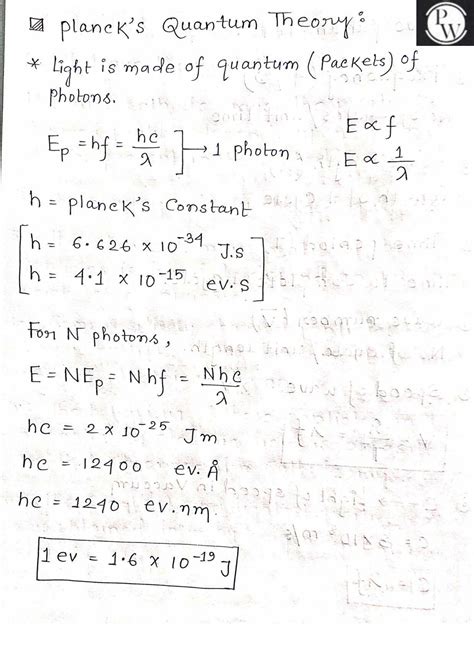 PW
planck's Quantum Theory:
* Light is made of quantum (Packets) of
Photons.
E_p = hf = hc/λ ] → 1 photon
E ∝ f
E ∝ 1/λ
h = planck's Constant
[ h = 6.626 × 10^-34 J.s
h = 4.1 × 10^-15 ev.s ]
For N photons,
E = NE_p = Nhf = Nhc/λ
hc = 2 × 10^-25 Jm
hc = 12400 ev.Å
hc = 1240 ev.nm.
1 ev = 1.6 × 10^-19 J